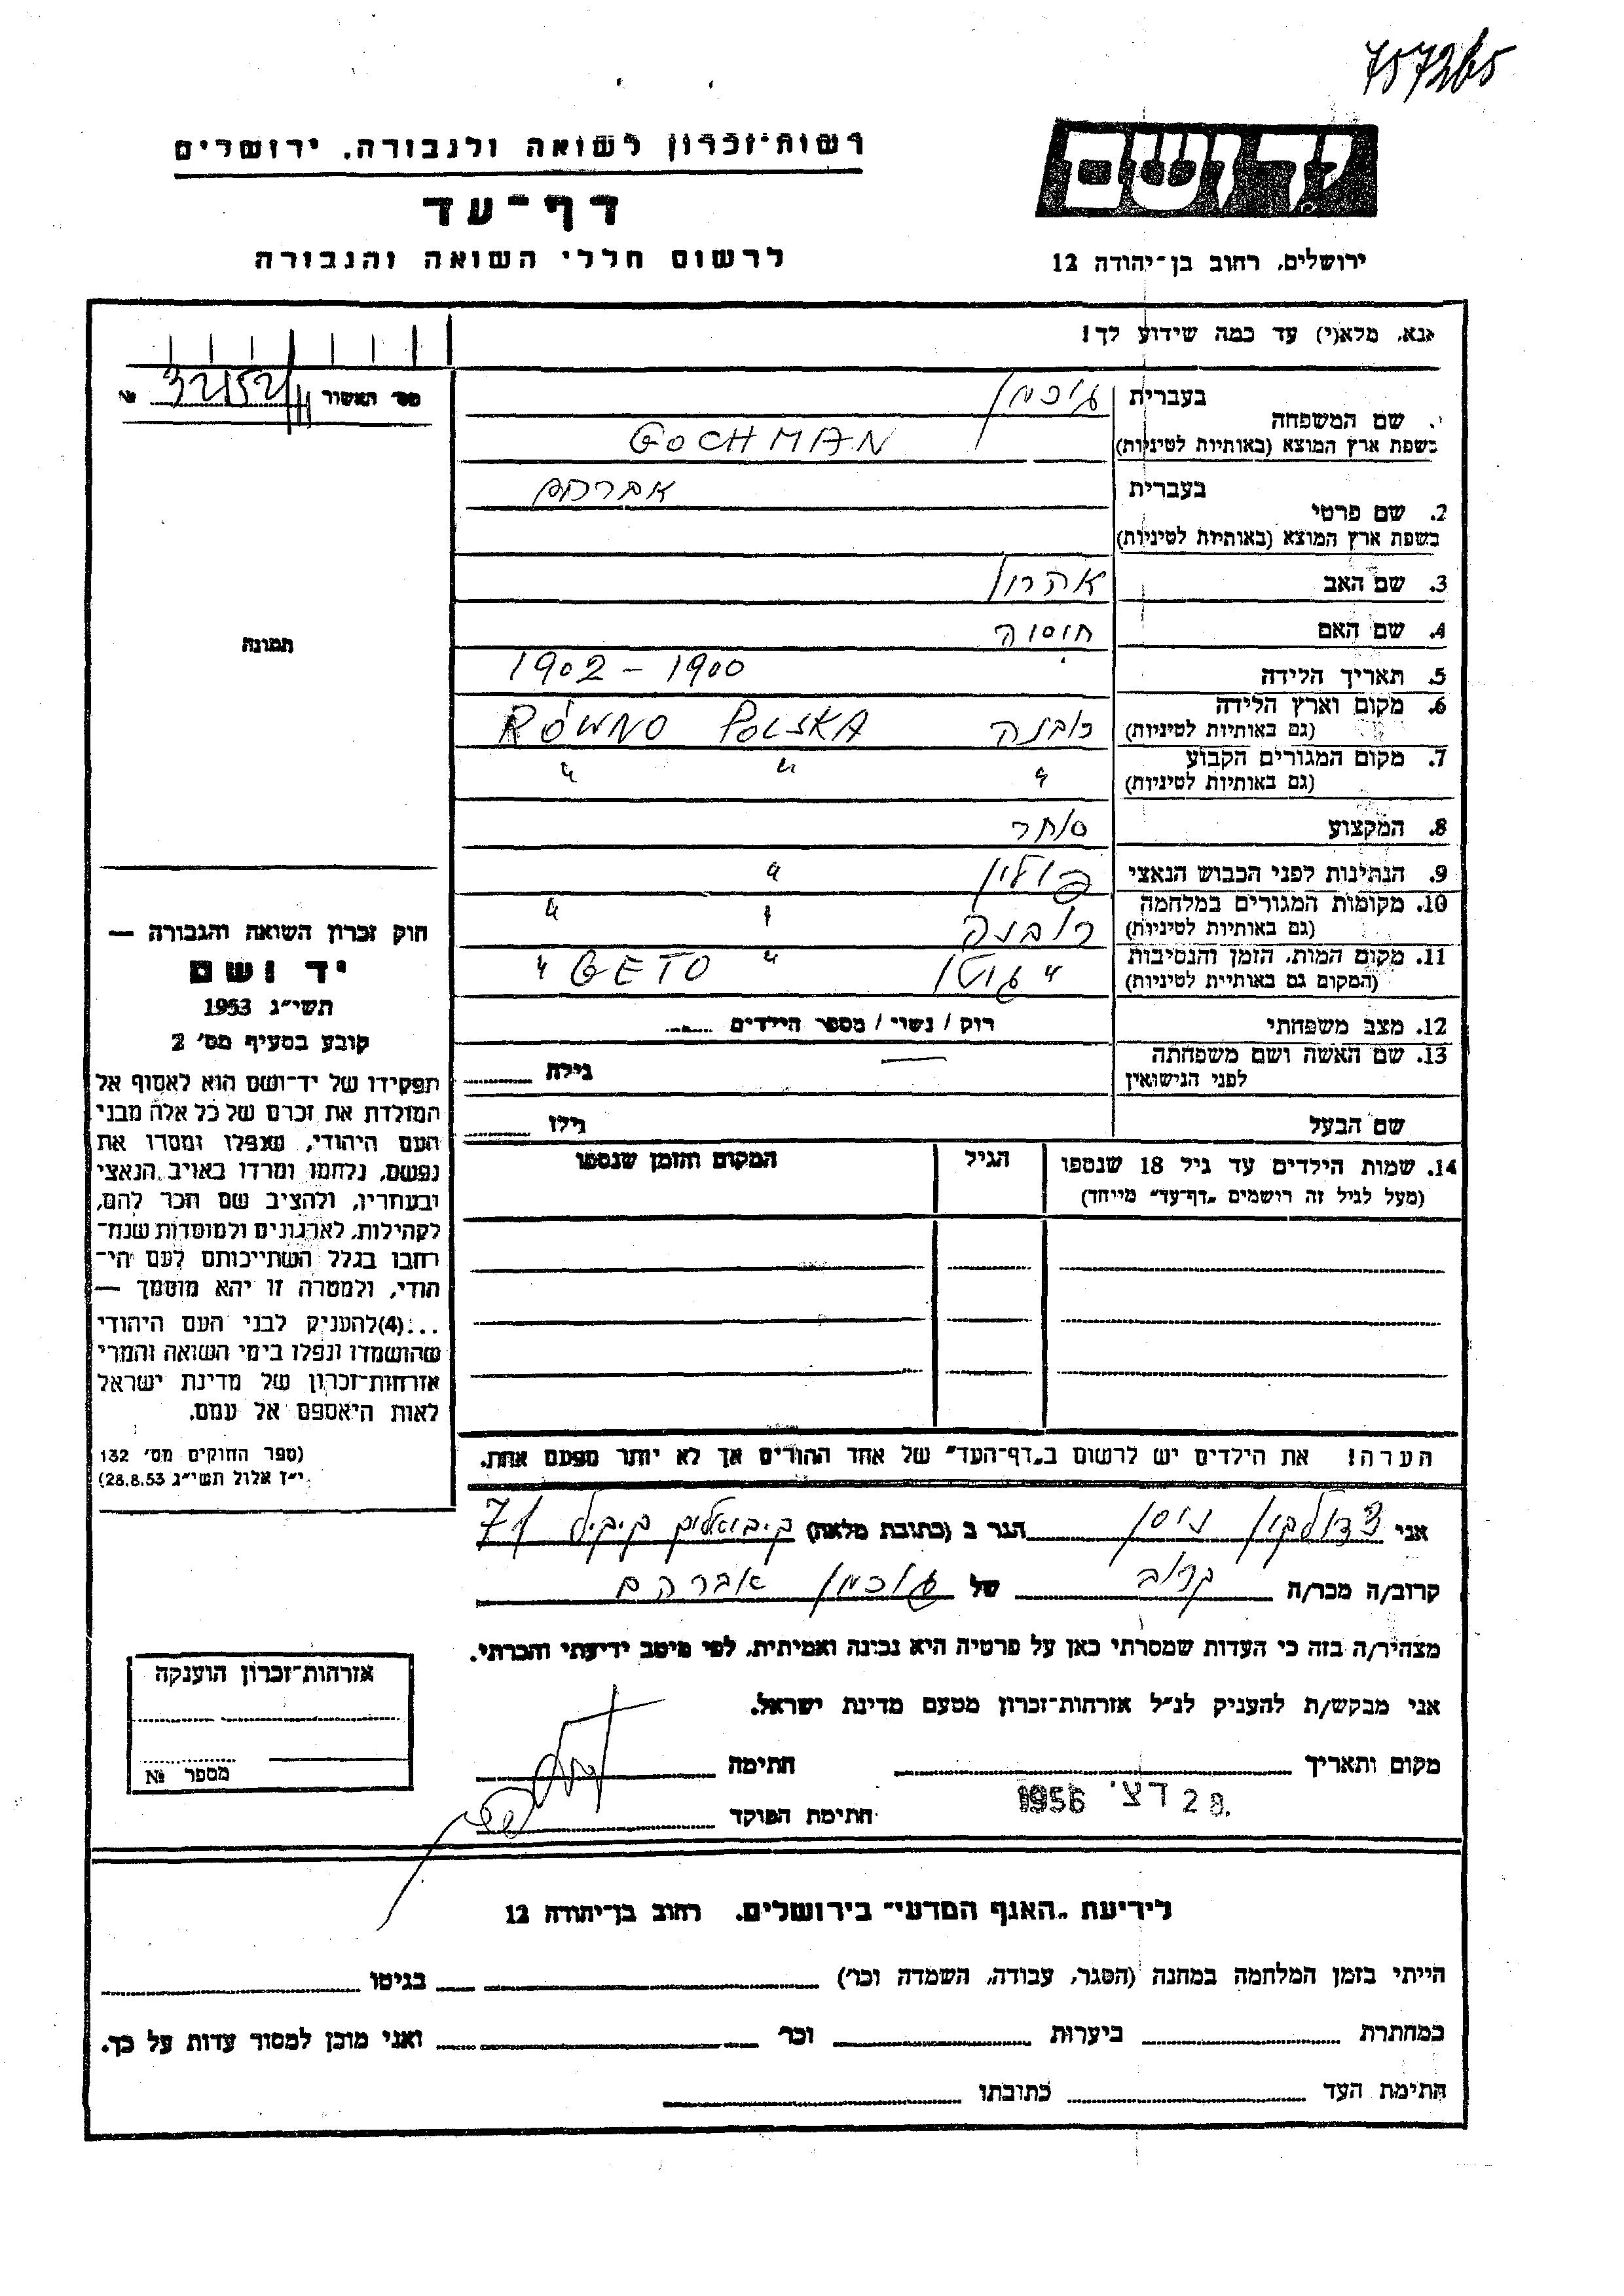 757265
יד ושם
רשות־זכרון לשואה ולגבורה, ירושלים
דף־עד
לרשום חללי השואה והגבורה
ירושלים, רחוב בן־יהודה 12
אנא, מלא(י) עד כמה שידוע לך!
מס׳ האשור № 32152/
1. שם המשפחה בעברית גוכמן
בשפת ארץ המוצא (באותיות לטיניות) GOCHMAN
2. שם פרטי בעברית אברהם
בשפת ארץ המוצא (באותיות לטיניות)
3. שם האב אהרון
4. שם האם חוסיה
5. תאריך הלידה 1902 – 1900
6. מקום וארץ הלידה (גם באותיות לטיניות) רובנה RÓWNO POLSKA
7. מקום המגורים הקבוע (גם באותיות לטיניות) " " "
8. המקצוע סוחר
9. הנתינות לפני הכבוש הנאצי פולין "
10. מקומות המגורים במלחמה (גם באותיות לטיניות) רובנה " "
11. מקום המות, הזמן והנסיבות (המקום גם באותיית לטיניות) " גטו " GETO "
12. מצב משפחתי רוק / נשוי / מספר הילדים
13. שם האשה ושם משפחתה לפני הנישואין — גילה
שם הבעל גילו
14. שמות הילדים עד גיל 18 שנספו (מעל לגיל זה רושמים „דף־עד״ מייחד) הגיל המקום והזמן שנספו
הערה! את הילדים יש לרשום ב„דף־העד״ של אחד ההורים אך לא יותר מפעם אחת.
תמונה
חוק זכרון השואה והגבורה —
יד ושם
תשי״ג 1953
קובע בסעיף מס׳ 2
תפקידו של יד־ושם הוא לאסוף אל
המולדת את זכרם של כל אלה מבני
העם היהודי, שנפלו ומסרו את
נפשם, נלחמו ומרדו באויב הנאצי
ובעוזריו, ולהציב שם וזכר להם,
לקהילות, לארגונים ולמוסדות שנח־
רבו בגלל השתייכותם לעם הי־
הודי, ולמטרה זו יהא מוסמך —
...(4) להעניק לבני העם היהודי
שהושמדו ונפלו בימי השואה והמרי
אזרחות־זכרון של מדינת ישראל
לאות היאספם אל עמם.
(ספר החוקים מס׳ 132
י״ז אלול תשי״ג 28.8.53)
אני ניסן הגר ב (כתובת מלאה) 71
קרוב/ה מכר/ה קרוב של גוכמן אברהם
מצהיר/ה בזה כי העדות שמסרתי כאן על פרטיה היא נכונה ואמיתית, לפי מיטב ידיעתי והכרתי.
אני מבקש/ת להעניק לנ״ל אזרחות־זכרון מטעם מדינת ישראל.
מקום ותאריך חתימה
28 דצ׳ 1956
חתימת הפוקד
אזרחות־זכרון הוענקה
מספר №
לידיעת „האגף המדעי״ בירושלים, רחוב בן־יהודה 12
הייתי בזמן המלחמה במחנה (הסגר, עבודה, השמדה וכר׳) בגיטו
במחתרת ביערות וכר׳ ואני מוכן למסור עדות על כך.
חתימת העד כתובתו